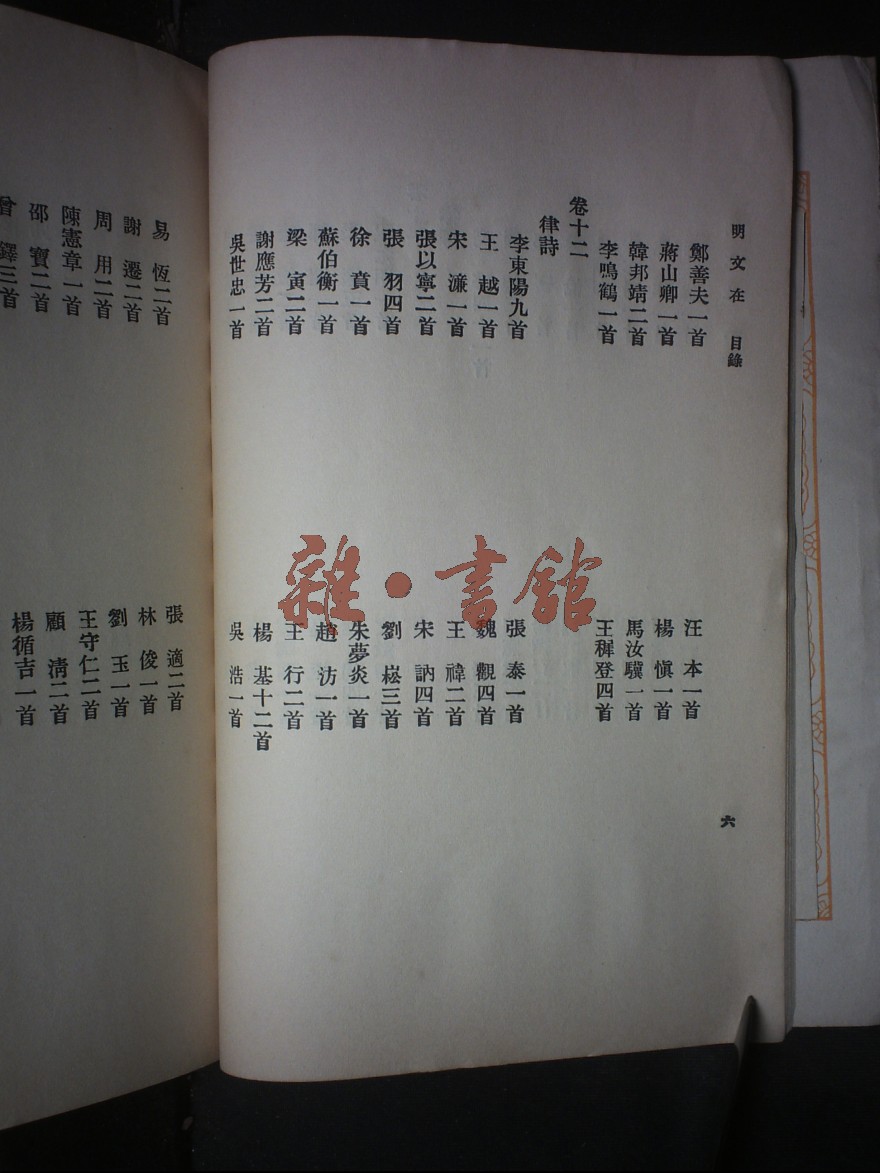 明文在 目錄
六
鄭善夫一首
汪本一首
蔣山卿一首
楊慎一首
韓邦靖二首
馬汝驥一首
李鳴鶴一首
王穉登四首
卷十二
律詩
李東陽九首
張泰一首
王越一首
魏觀四首
宋濂一首
王禕二首
張以寧二首
宋訥四首
張羽四首
劉崧三首
徐賁一首
朱夢炎一首
蘇伯衡一首
趙汸一首
梁寅二首
王行二首
謝應芳二首
楊基十二首
吳世忠一首
吳浩一首
易恆二首
張適二首
謝遷二首
林俊一首
周用二首
劉玉一首
陳憲章一首
王守仁二首
邵寶二首
顧清二首
曾鐸三首
楊循吉一首
雜·書館